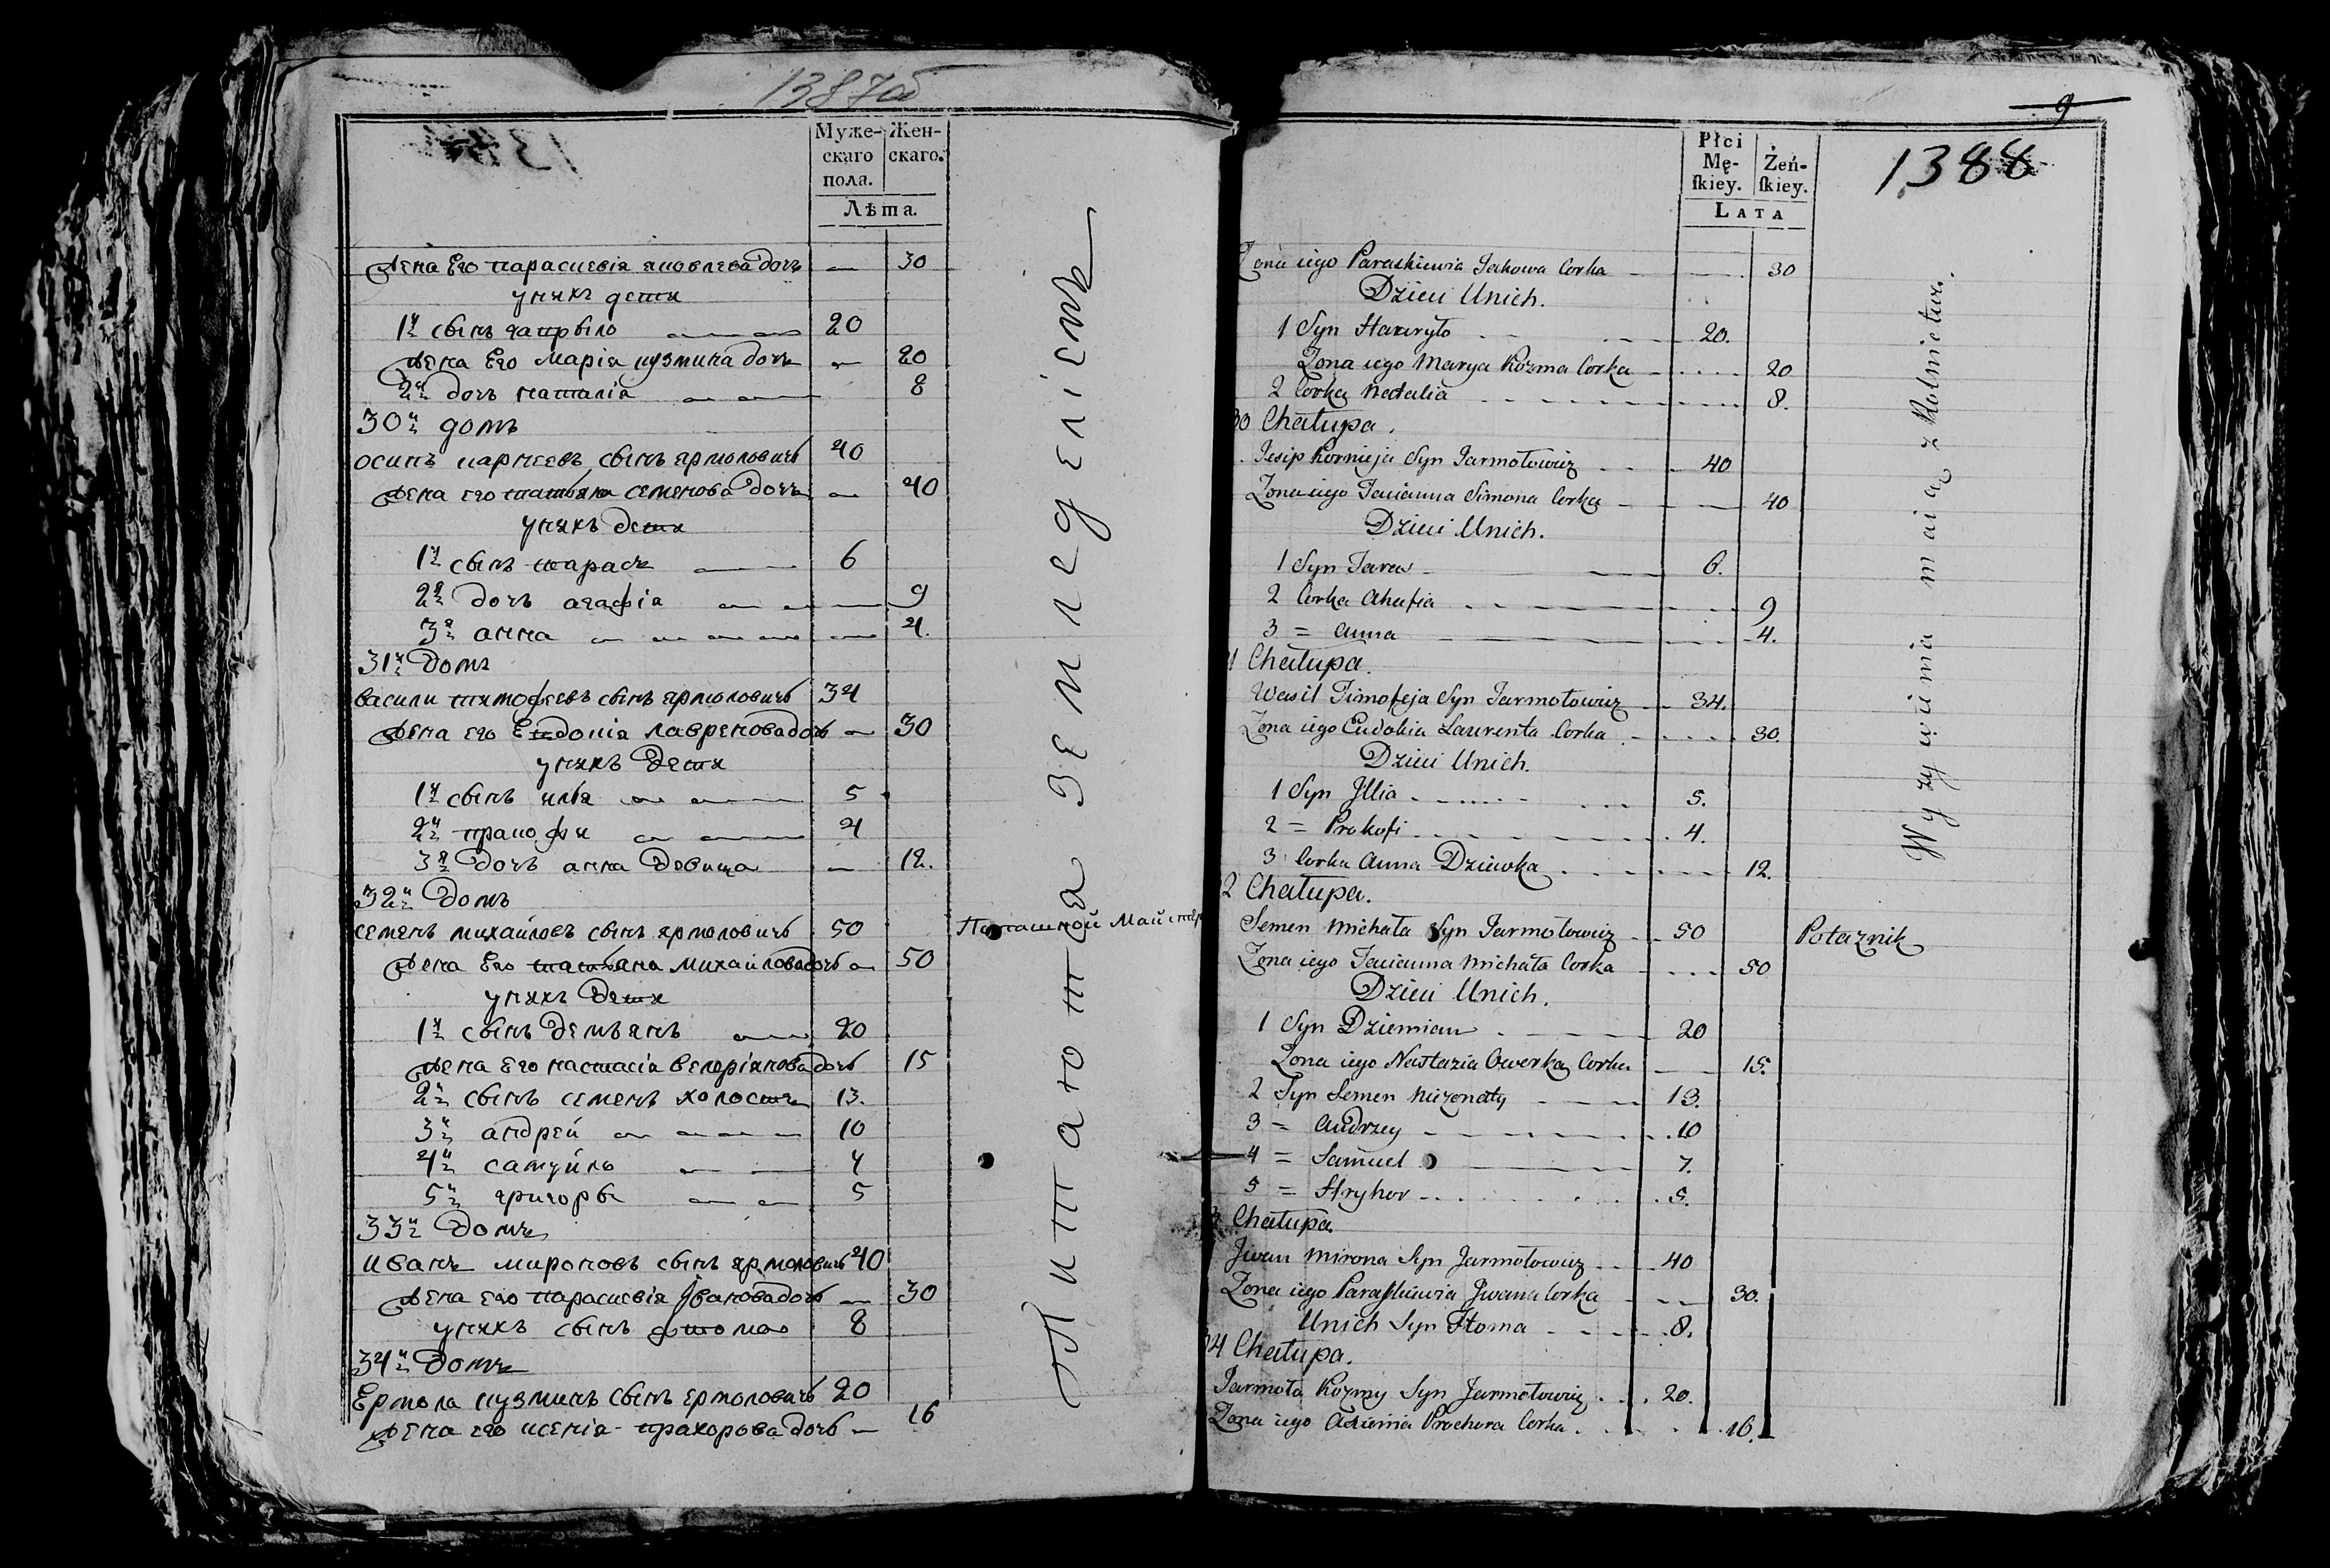 1387об
Муже-
скаго
пола.
Жен-
скаго.
Лѣта.
жена Его параскевія яковлева дочь — 30
уних дети
1й сынъ гаврыло 20
жена Его Марія кузмина дочь — 20
2я дочь наталія 8
30й домъ
осипъ карнеевъ сынъ ярмоловичъ 40
жена его татьяна семенова дочь — 40
унихъ дети
1й сынъ тарасъ 6
2я дочь агафія 9
3я анна 4.
31й домъ
васили тимофеевъ сынъ ярмоловичъ 34
жена его Евдокія лавренова дочь — 30
унихъ дети
1й сынъ илья 5
2й пракофи 4
3я дочь анна девица — 12.
32й домъ
семенъ михайловъ сынъ ярмоловичъ 50 Поташной Майстер
жена Его татьяна михайлова дочь — 50
унихъ дети
1й сынъ демъянъ 20
жена Его настасія велеріянова дочь 15
2й сынъ семенъ холостъ 13.
3й андрей 10
4й самуйло 7
5й григоры 5
33й домъ
иванъ мироновъ сынъ ярмоловичъ 40
жена его параскевія Ивановa дочь — 30
унихъ сынъ фтома 8
34й домъ
Ермола кузминъ сынъ ермоловичъ 20
жена его ксенія прахорова дочь — 16
Питаются земледеліемъ
9
1388
Płci
Mę-
ſkiey.
Żeń-
ſkiey.
LATA
Zona iego Paraskiewia Jackowa Corka 30
Dzieci Unich.
1 Syn Hawryło 20.
Zona iego Marya Kozma Corka 20
2 Corka Natalia 8.
30 Chałupa.
Jusip Kornieja Syn Jarmołowicz 40
Zona iego Tacianna Simona Corka 40
Dzieci Unich.
1 Syn Taras 6.
2 Corka Ahafia 9
3 = Anna 4.
1 Chałupa.
Wasil Timofeja Syn Jarmołowicz 34.
Zona iego Eudokia Laurenta Corka 30.
Dzieci Unich.
1 Syn Jllia 5.
2 = Prokofi 4.
3 Corka Anna Dziewka 12.
2 Chałupa.
Semen Michała Syn Jarmołowicz 50 Potaznik
Zona iego Tacianna Michała Corka 50
Dzieci Unich.
1 Syn Dziemian 20
Zona iego Nastazia Owerka Corka 15.
2 Syn Semen niezonaty 13.
3 = Andrzey 10
4 = Samuel 7.
5 = Hryhor 5.
3 Chałupa.
Jwan Mirona Syn Jarmołowicz 40
Zona iego Paraſkiewia Jwana Corka 30.
Unich Syn Htoma 8.
34 Chałupa.
Jarmoła Kozmy Syn Jarmołowicz 20.
Zona iego Axienia Prochora Corka 16.
Wyzywienia maią z Rolnictwa.